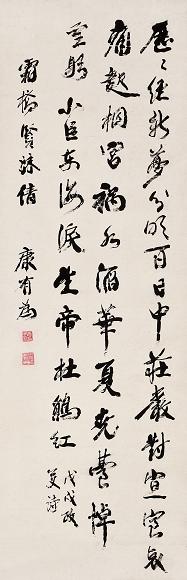 歷〻維新夢分明百日中莊嚴對宣室哀
痛起桐宮禍水滔華夏堯臺悼
聖躬小臣東海淚望帝杜鵑紅
戊戌
詩
霜橋賢棣
康有為